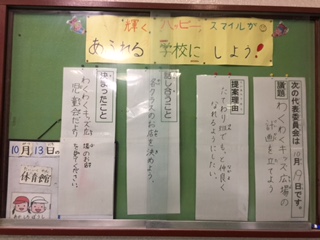 輝く ハッピースマイルが
あふれる 学校に しよう!
次の代表委員会は 月19日です。
議題
わくわくキッズ広場の
計画を立てよう
提案理由
たてわり班でもっと仲良く
なれるようにしたい。
話し合うこと
各クラスのお店を決めよう。
決まったこと
わくわくキッズ広場のお店
10月13日の
体育館